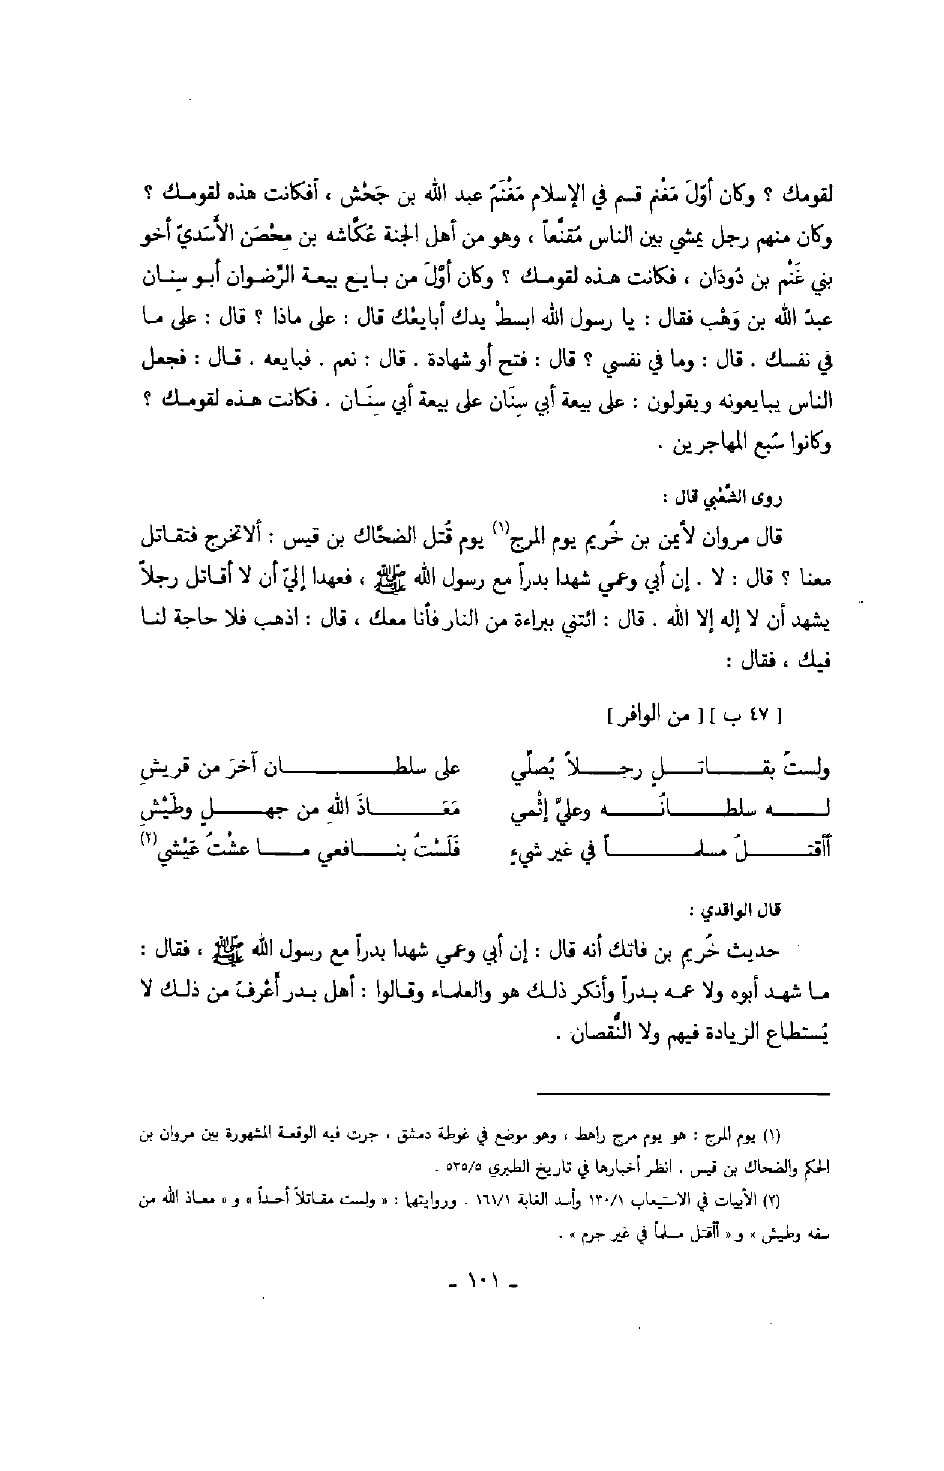 لقومك ؟ وكان أوّلَ مَغْنمٍ قسم في الإسلام مَغْنَمُ عبد الله بن جَحْش ، أفكانت هذه لقومك ؟
وكان منهم رجل يمشي بين الناس مُقنَّعاً ، وهو من أهل الجنة عُكّاشه بن مِحْصَن الأسَديّ أخو
بني غَنْم بن دُودَان ، فكانت هذه لقومك ؟ وكان أوّلَ من بايع بيعة الرِّضوان أبو سِنان
عبدُ الله بن وَهْب فقال : يا رسول الله ابسطْ يدك أبايعْك قال : على ماذا ؟ قال : على ما
في نفسك . قال : وما في نفسي ؟ قال : فتح أو شهادة . قال : نعم . فبايعه . قال : فجعل
الناس يبايعونه ويقولون : على بيعة أبي سِنَان على بيعة أبي سِنَان . فكانت هذه لقومك ؟
وكانوا سُبع المهاجرين .
روى الشَّعْبي قال :
قال مروان لأيمن بن خُريم يوم المرج(١) يوم قُتل الضحّاك بن قيس : ألا تخرج فتقاتل
معنا ؟ قال : لا . إن أبي وعمي شهدا بدراً مع رسول الله ﷺ ، فعهدا إليّ أن لا أقاتل رجلاً
يشهد أن لا إله إلا الله . قال : ائتني ببراءة من النار فأنا معك ، قال : اذهب فلا حاجة لنا
فيك ، فقال :
[ ٤٧ ب ] [ من الوافر ]
ولستُ بقاتلٍ رجلاً يُصلّي على سلطان آخرَ من قريشِ
له سلطانُه وعليَّ إثْمي مَعَاذَ الله من جهلٍ وطَيْشِ
أأقتلُ مسلماً في غير شيءٍ فَلَسْتُ بنافعي ما عشْتُ عَيْشي(٢)
قال الواقدي :
حديث خُريم بن فاتك أنه قال : إن أبي وعمي شهدا بدراً مع رسول الله ﷺ ، فقال :
ما شهد أبوه ولا عمه بدراً وأنكر ذلك هو والعلماء وقالوا : أهل بدر أعْرفُ من ذلك لا
يُستطاع الزيادة فيهم ولا النُّقصان .
(١) يوم المرج : هو يوم مرج راهط ، وهو موضع في غوطة دمشق ، جرت فيه الوقعة المشهورة بين مروان بن
الحكم والضحاك بن قيس . انظر أخبارها في تاريخ الطبري ٥٣٥/٥ .
(٢) الأبيات في الاستيعاب ١٣٠/١ وأسد الغابة ١٦١/١ . وروايتها : « ولست مقاتلاً أحداً » و « معاذ الله من
سفه وطيش » و « أأقتل مسلماً في غير جرم » .
- ١٠١ -